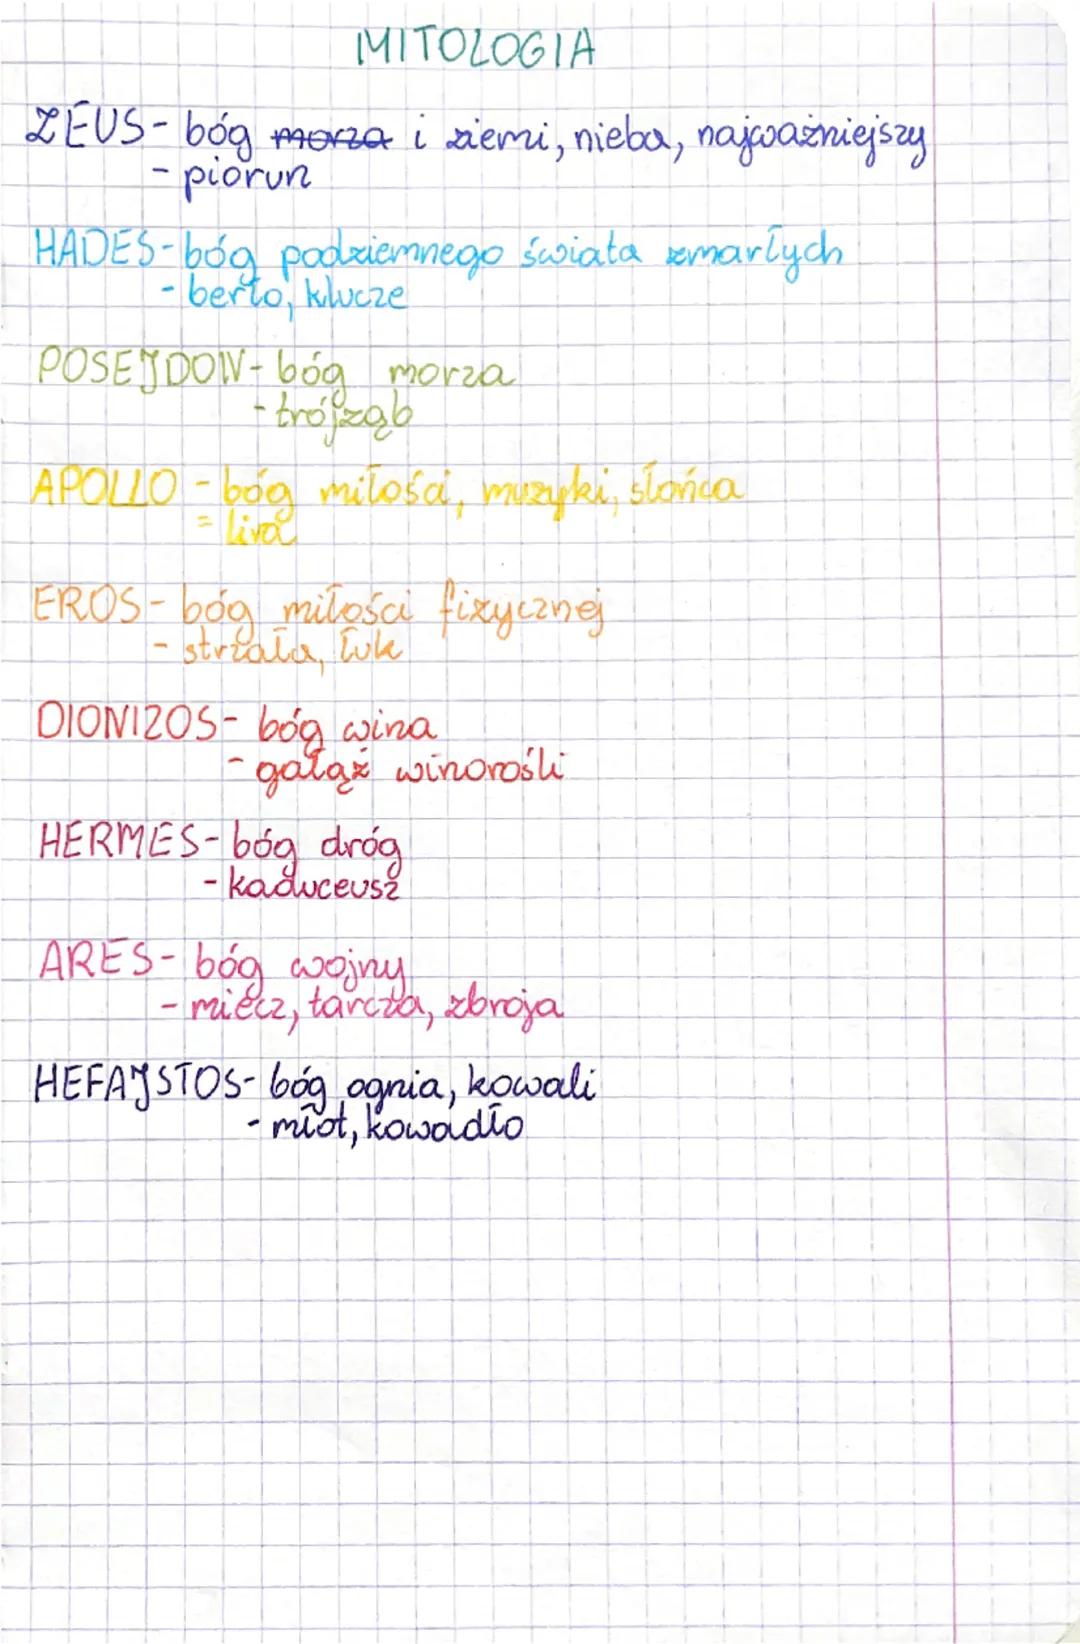 MITOLOGIA
ZEUS - bóg morza i ziemi, nieba, najważniejszy
- piorun
HADES - bóg podziemnego świata zmarłych
- berło, klucze
POSEJDON - bóg morza
- trójząb
APOLLO - bóg miłości, muzyki, słońca
= lira
EROS - bóg miłości fizycznej
- strzała, łuk
DIONIZOS - bóg wina
- gałąź winorośli
HERMES - bóg dróg
- kaduceusz
ARES - bóg wojny
- miecz, tarcza, zbroja
HEFAJSTOS - bóg ognia, kowali
- młot, kowadło